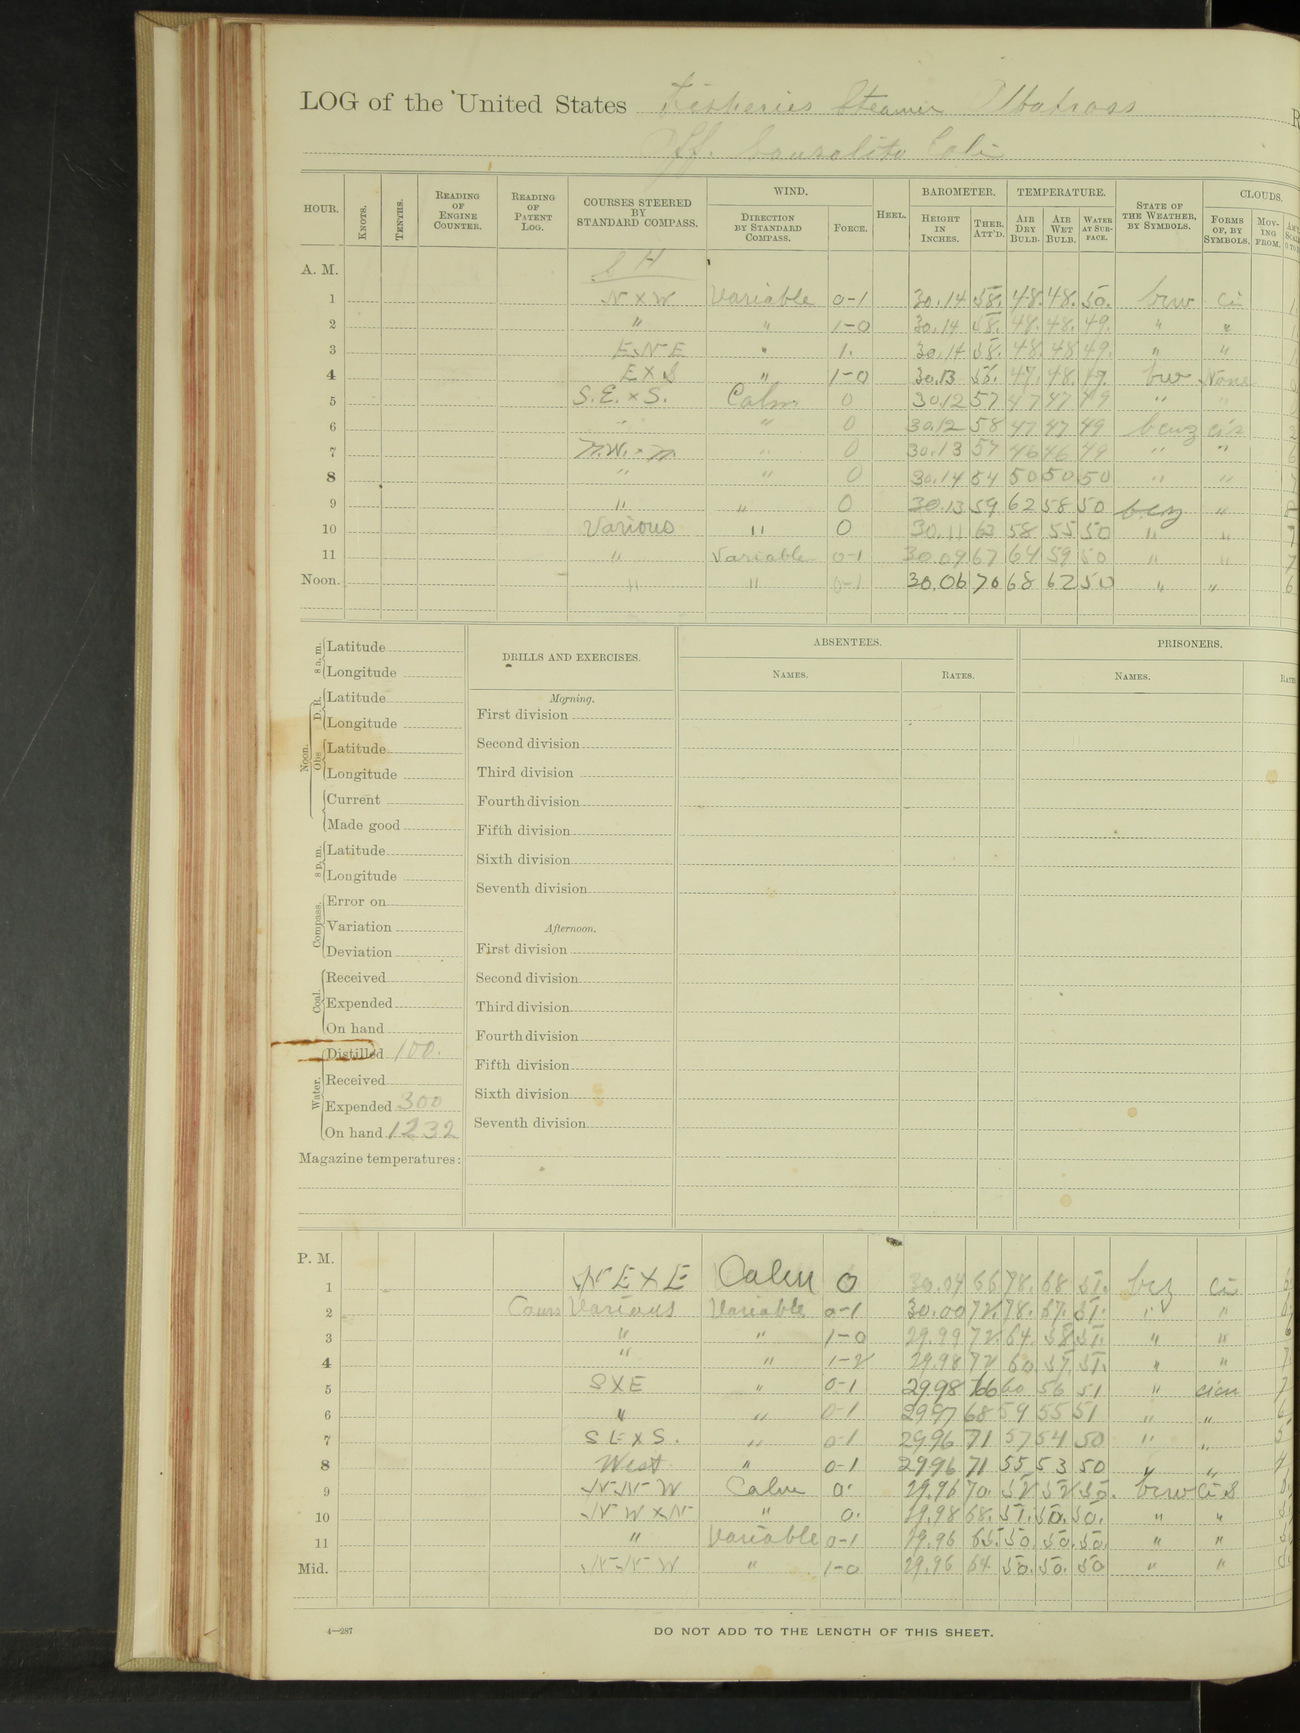 LOG of the United States Fisheries Steamer Albatross R
Off. Sausalito Cali
HOUR. KNOTS. TENTHS. READING OF ENGINE COUNTER. READING OF PATENT LOG. COURSES STEERED BY STANDARD COMPASS. WIND. DIRECTION BY STANDARD COMPASS. FORCE. HEEL. BAROMETER. HEIGHT IN INCHES. THER. ATT'D. TEMPERATURE. AIR DRY BULB. AIR WET BULB. WATER AT SURFACE. STATE OF THE WEATHER, BY SYMBOLS. CLOUDS. FORMS OF, BY SYMBOLS. MOVING FROM.
A. M.
1 N X W Variable 0-1 30.14 58. 48. 48. 50. bcw Ci
2 " " 1-0 30.14 58. 48. 48. 49. " "
3 E N E " 1. 30.14 58. 48. 48 49. " "
4 E X S " 1-0 30.13 47. 48. 49. bw None
5 S.E. x S. Calm 0 30.12 57 47 47 49 " "
6 " " 0 30.12 58 47 47 49
7 N.W. x N. " 0 30.13 57 46 46 49 " "
8 " " 0 30.14 54 50 50 50 " "
9 " " 0 30.13 59 62 58 50 bcz "
10 Various " 0 30.11 63 58 55 50 " "
11 " Variable 0-1 30.09 67 64 59 50 " "
Noon. " " 0-1 30.06 70 68 62 50 " "
8 a. m. Latitude
Longitude
Noon. D. R. Latitude
Longitude
Obs Latitude
Longitude
Current
Made good
8 p. m. Latitude
Longitude
Compass. Error on
Variation
Deviation
Coal. Received
Expended
On hand
Water. Distilled 100.
Received
Expended 300
On hand 1232
Magazine temperatures:
DRILLS AND EXERCISES.
Morning.
First division
Second division
Third division
Fourth division
Fifth division
Sixth division
Seventh division
Afternoon.
First division
Second division
Third division
Fourth division
Fifth division
Sixth division
Seventh division
ABSENTEES.
NAMES. RATES.
PRISONERS.
NAMES. RATE
P. M.
1 N E X E Calm 0 30.04 66 78. 68 51. bcz Ci
2 Various Variable 0-1 30.00 72. 78. 67. 51. " "
3 " " 1-0 29.99 72. 64. 58 51. " "
4 " " 1-2 29.98 72 60. 57. 51. " "
5 S X E " 0-1 29.98 66 60 56 51 " cicu
6 " " 0-1 29.97 68 59 55 51 " "
7 S E X S. " 0-1 29.96 71 57 54 50 " "
8 West " 0-1 29.96 71 55 53 50 " "
9 N N W Calm 0. 29.96 70. 52 52 50. bcw Ci S
10 N W x N " 0. 29.98 68. 51. 50. 50. " "
11 " Variable 0-1 29.96 65. 50. 50. 50. " "
Mid. N N W " 1-0 29.96 64. 50. 50. 50 " "
4—287
DO NOT ADD TO THE LENGTH OF THIS SHEET.